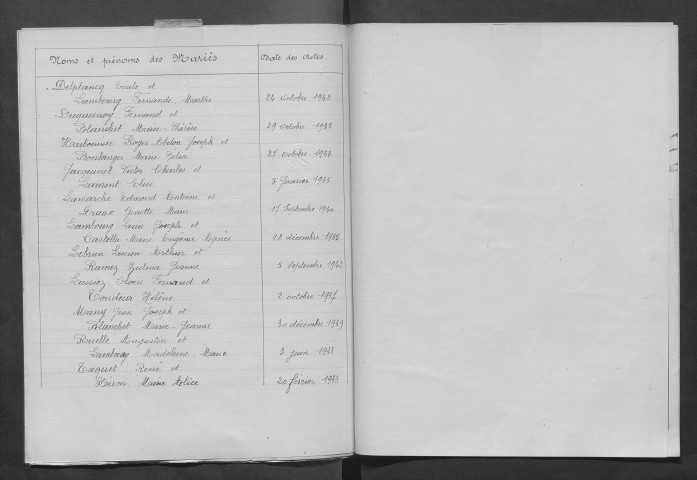 Noms et prénoms des Mariés Date des Actes
Delplancq Emile et
Lambourg Fernande, Marthe 24 octobre 1942
Duquesnoy Fernand et
Blanchet Marie-Thérèse 29 octobre 1935
Roger Joseph et
Boulanger Marie 27 octobre 1934
Jacquinet Victor Charles et
Laurent Elise 5 Janvier 1935
Lamarche Edmond Antoine et
Draux Ginette Marie 17 Septembre 1940
Lambourg Louis Joseph et
Castella Marie Eugénie Agnès 28 décembre
Lebrun Lucien Arthur et
Ramez Zulma Jeanne 5 Septembre 1942
Fernand et
Tondeur Hélène 2 octobre 1937
Many Jean Joseph et
Blanchet Marie-Jeanne 30 décembre 1939
Ruelle Augustin et
Madeleine-Marie 3 juin 1938
Taquet René et
Marie Alice 20 février 1933